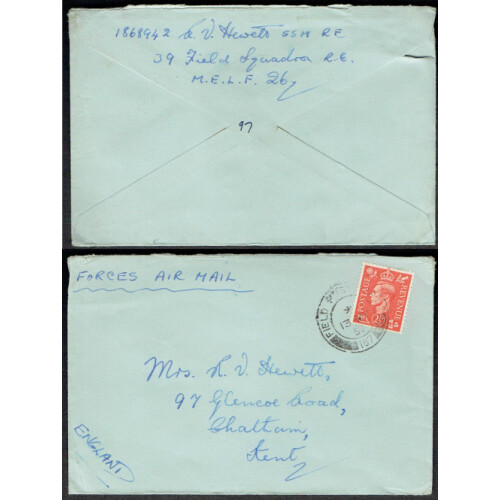 1868942 R V Hewett SSM RE
39 Field Squadron R.E.
M.E.L.F. 26
97
FORCES AIR MAIL
FIELD
187
POSTAGE
REVENUE
Mrs. R. V. Hewett,
97 Glencoe Road,
Chatham,
Kent
ENGLAND